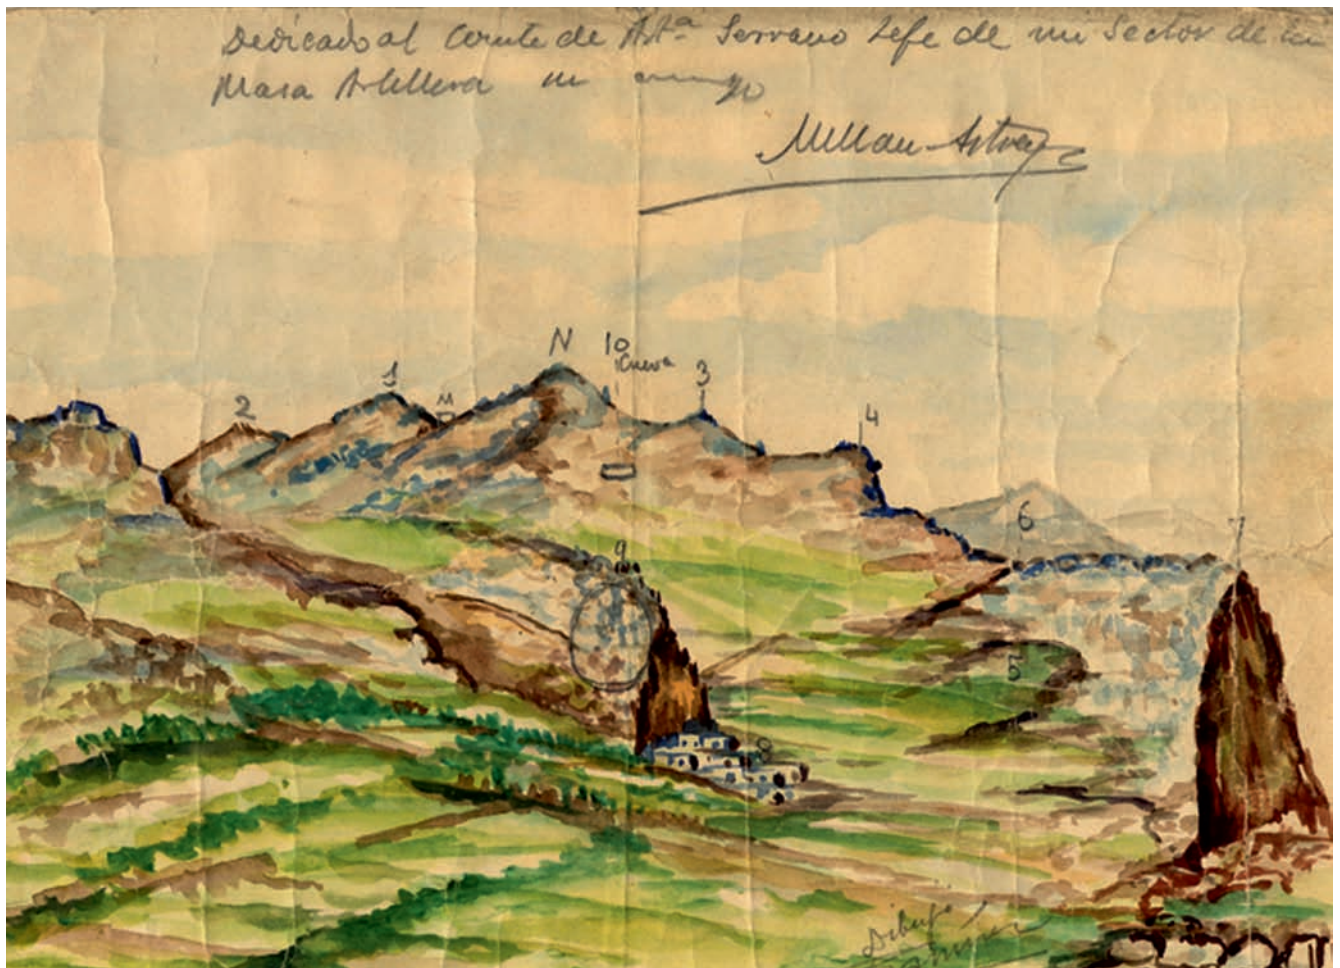 Dedicado al Comte de Artª Serrano Jefe de un Sector de la
Masa Artillera
Millan-Astray
N
10
Cueva
1
M
2
3
4
6
7
9
5
8
Dibujo